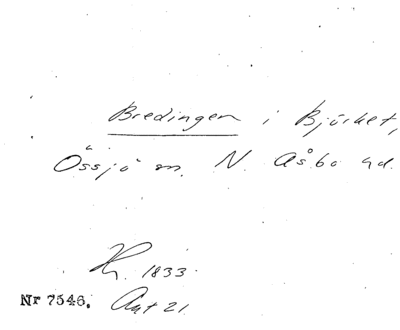 Bredingen i Björket,
Össjö sn. N. Åsbo hd.
1833.
Nr 7546. Ant 21.